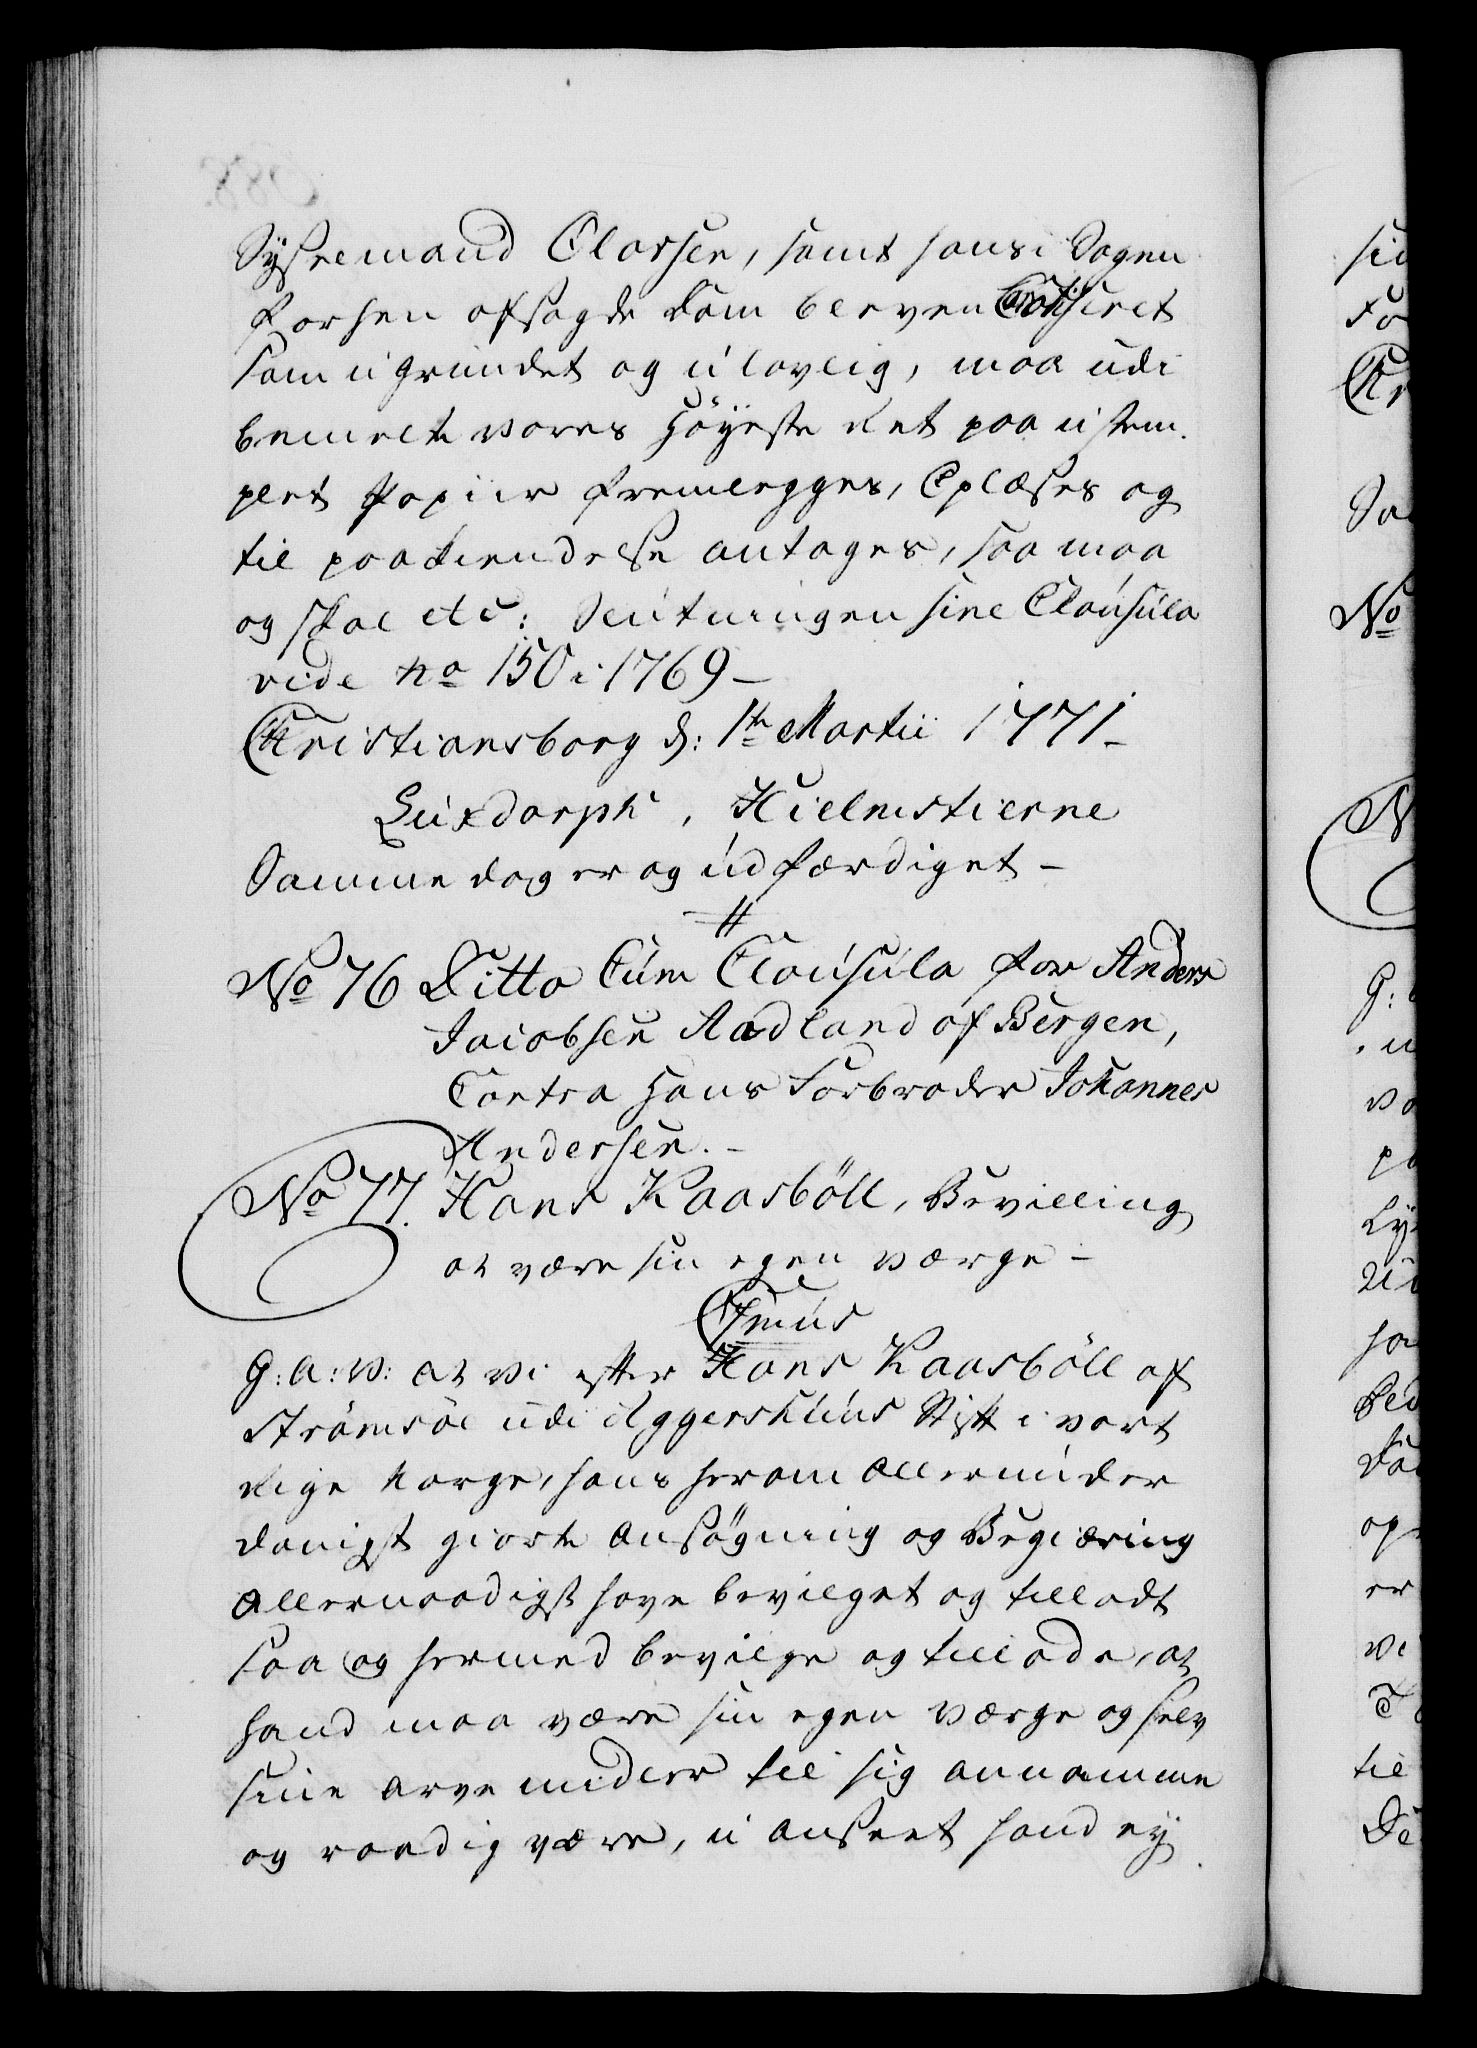 Systemand Olorsen, samt hans i Sagen
Forhen afsagde Dom bleven Casseret
som ugrundet og ulovlig, maa udi
bemelte vores Høyeste Ret paa u stem-
plet Papiir fremlegges, Oplæses og
til paakiendelse antages, saa maa
og skal etc: Slutningen sine Clausula
vide No 150 i 1769 –
Christiansborg d: 1te Martii 1771 –
Luxdorph, Hielmstierne
Samme dag er og udfærdiget –
No 76 Ditto Cum Clausula for Anders
Jacobsen Aadland af Bergen,
Contra Hans Forbroder Johannes
Andersen. –
No 77. Hans Kaasbøll, Bevilling
at være sin egen Værge –
G: A: V: At Vi efter Hans Kaasbøll af
Strømsøe udi Aggershuus Stift i vort
Rige Norge, hans herom Allerunder
danigst giorte Ansøgning og Begiæring
Allernaadigst have bevilget og tilladt
saa og hermed bevilge og tillade, at
hand maa være sin egen Værge og selv
sine Arve midler til sig annamme
og raadig være, u anseet hand ey